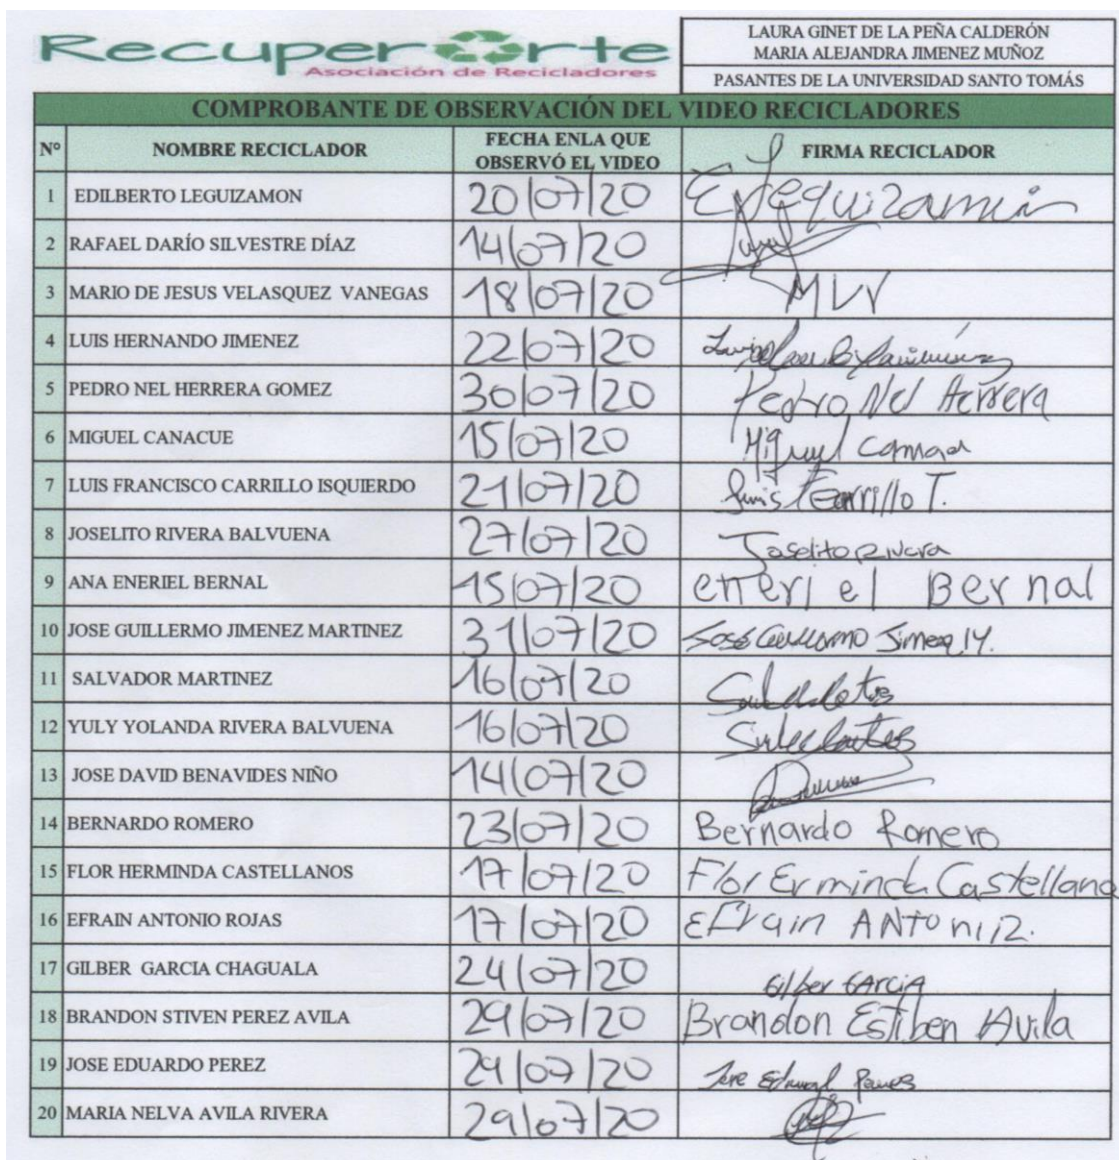 Recuperarte
Asociación de Recicladores
LAURA GINET DE LA PEÑA CALDERÓN
MARIA ALEJANDRA JIMENEZ MUÑOZ
PASANTES DE LA UNIVERSIDAD SANTO TOMÁS
COMPROBANTE DE OBSERVACIÓN DEL VIDEO RECICLADORES
N° NOMBRE RECICLADOR FECHA ENLA QUE OBSERVÓ EL VIDEO FIRMA RECICLADOR
1 EDILBERTO LEGUIZAMON 20/07/20 E Leguizamón
2 RAFAEL DARÍO SILVESTRE DÍAZ 14/07/20
3 MARIO DE JESUS VELASQUEZ VANEGAS 18/07/20 MLV
4 LUIS HERNANDO JIMENEZ 22/07/20
5 PEDRO NEL HERRERA GOMEZ 30/07/20 Pedro Nel Herrera
6 MIGUEL CANACUE 15/07/20 Miguel
7 LUIS FRANCISCO CARRILLO ISQUIERDO 21/07/20 Luis F Carrillo I.
8 JOSELITO RIVERA BALVUENA 27/07/20 Joselito Rivera
9 ANA ENERIEL BERNAL 15/07/20 eneriel Bernal
10 JOSE GUILLERMO JIMENEZ MARTINEZ 31/07/20 José Guillermo
11 SALVADOR MARTINEZ 16/07/20
12 YULY YOLANDA RIVERA BALVUENA 16/07/20
13 JOSE DAVID BENAVIDES NIÑO 14/07/20
14 BERNARDO ROMERO 23/07/20 Bernardo Romero
15 FLOR HERMINDA CASTELLANOS 17/07/20 Flor Erminda Castellano
16 EFRAIN ANTONIO ROJAS 17/07/20 EFrain ANTONIO R.
17 GILBER GARCIA CHAGUALA 24/07/20 Gilber GArciA
18 BRANDON STIVEN PEREZ AVILA 29/07/20 Brandon Estiben Avila
19 JOSE EDUARDO PEREZ 29/07/20
20 MARIA NELVA AVILA RIVERA 29/07/20